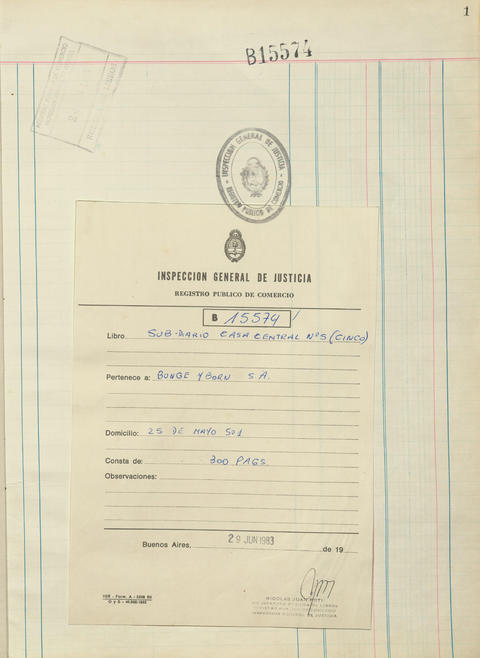 1
B15574
INSPECCION GENERAL DE JUSTICIA
REGISTRO PUBLICO DE COMERCIO
INSPECCION GENERAL DE JUSTICIA
REGISTRO PUBLICO DE COMERCIO
B 15574
Libro SUB-DIARIO CASA CENTRAL Nº5 (CINCO)
Pertenece a: BUNGE Y BORN S.A.
Domicilio: 25 DE MAYO 501
Consta de: 300 PAGS
Observaciones:
Buenos Aires, 29 JUN 1983 de 19
NICOLAS JUAN